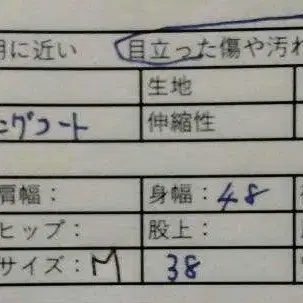 に近い 目立った傷や汚れ
生地
ングコート 伸縮性
肩幅： 身幅：48
ヒップ： 股上：
サイズ：M 38